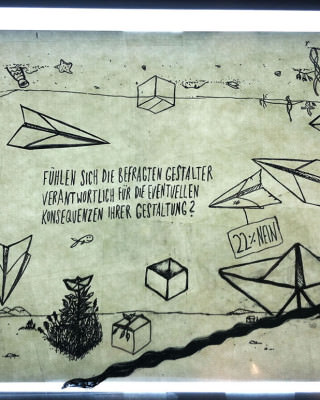 FÜHLEN SICH DIE BEFRAGTEN GESTALTER
VERANTWORTLICH FÜR DIE EVENTUELLEN
KONSEQUENZEN IHRER GESTALTUNG?
22% NEIN